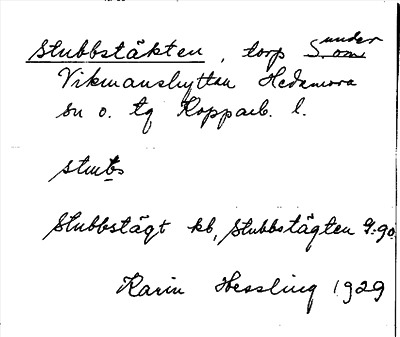 Stubbstäkten, torp S. om under
Vikmanshyttan Hedemora
sn o. tg Kopparb. l.
Stubbstägt kb, Stubbstägten G.90
Karin Hessling 1929